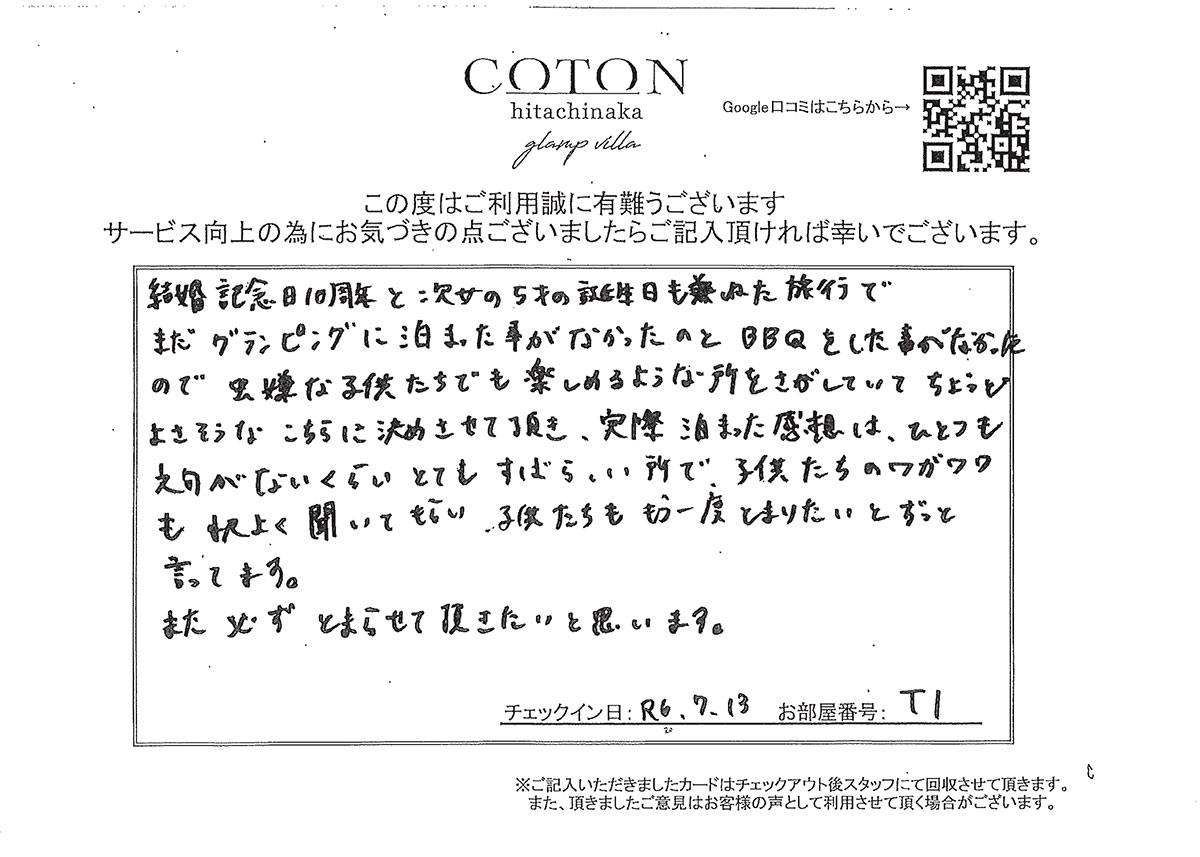 COTON
hitachinaka
glamp villa
Google口コミはこちらから→
この度はご利用誠に有難うございます
サービス向上の為にお気づきの点ございましたらご記入頂ければ幸いでございます。
結婚記念日10周年と次女の5才の誕生日も兼ねた旅行で
まだグランピングに泊まった事がなかったのとBBQをした事がなかった
ので虫嫌な子供たちでも楽しめるような所をさがしていてちょうど
よさそうなこちらに決めさせて頂き、実際泊まった感想は、ひとつも
文句がないくらいとてもすばらしい所で、子供たちのワガママ
も快よく聞いてもらい、子供たちももう一度とまりたいとずっと
言ってます。
また必ずとまらせて頂きたいと思います。
チェックイン日：R6.7.13 お部屋番号：T1
※ご記入いただきましたカードはチェックアウト後スタッフにて回収させて頂きます。
また、頂きましたご意見はお客様の声として利用させて頂く場合がございます。